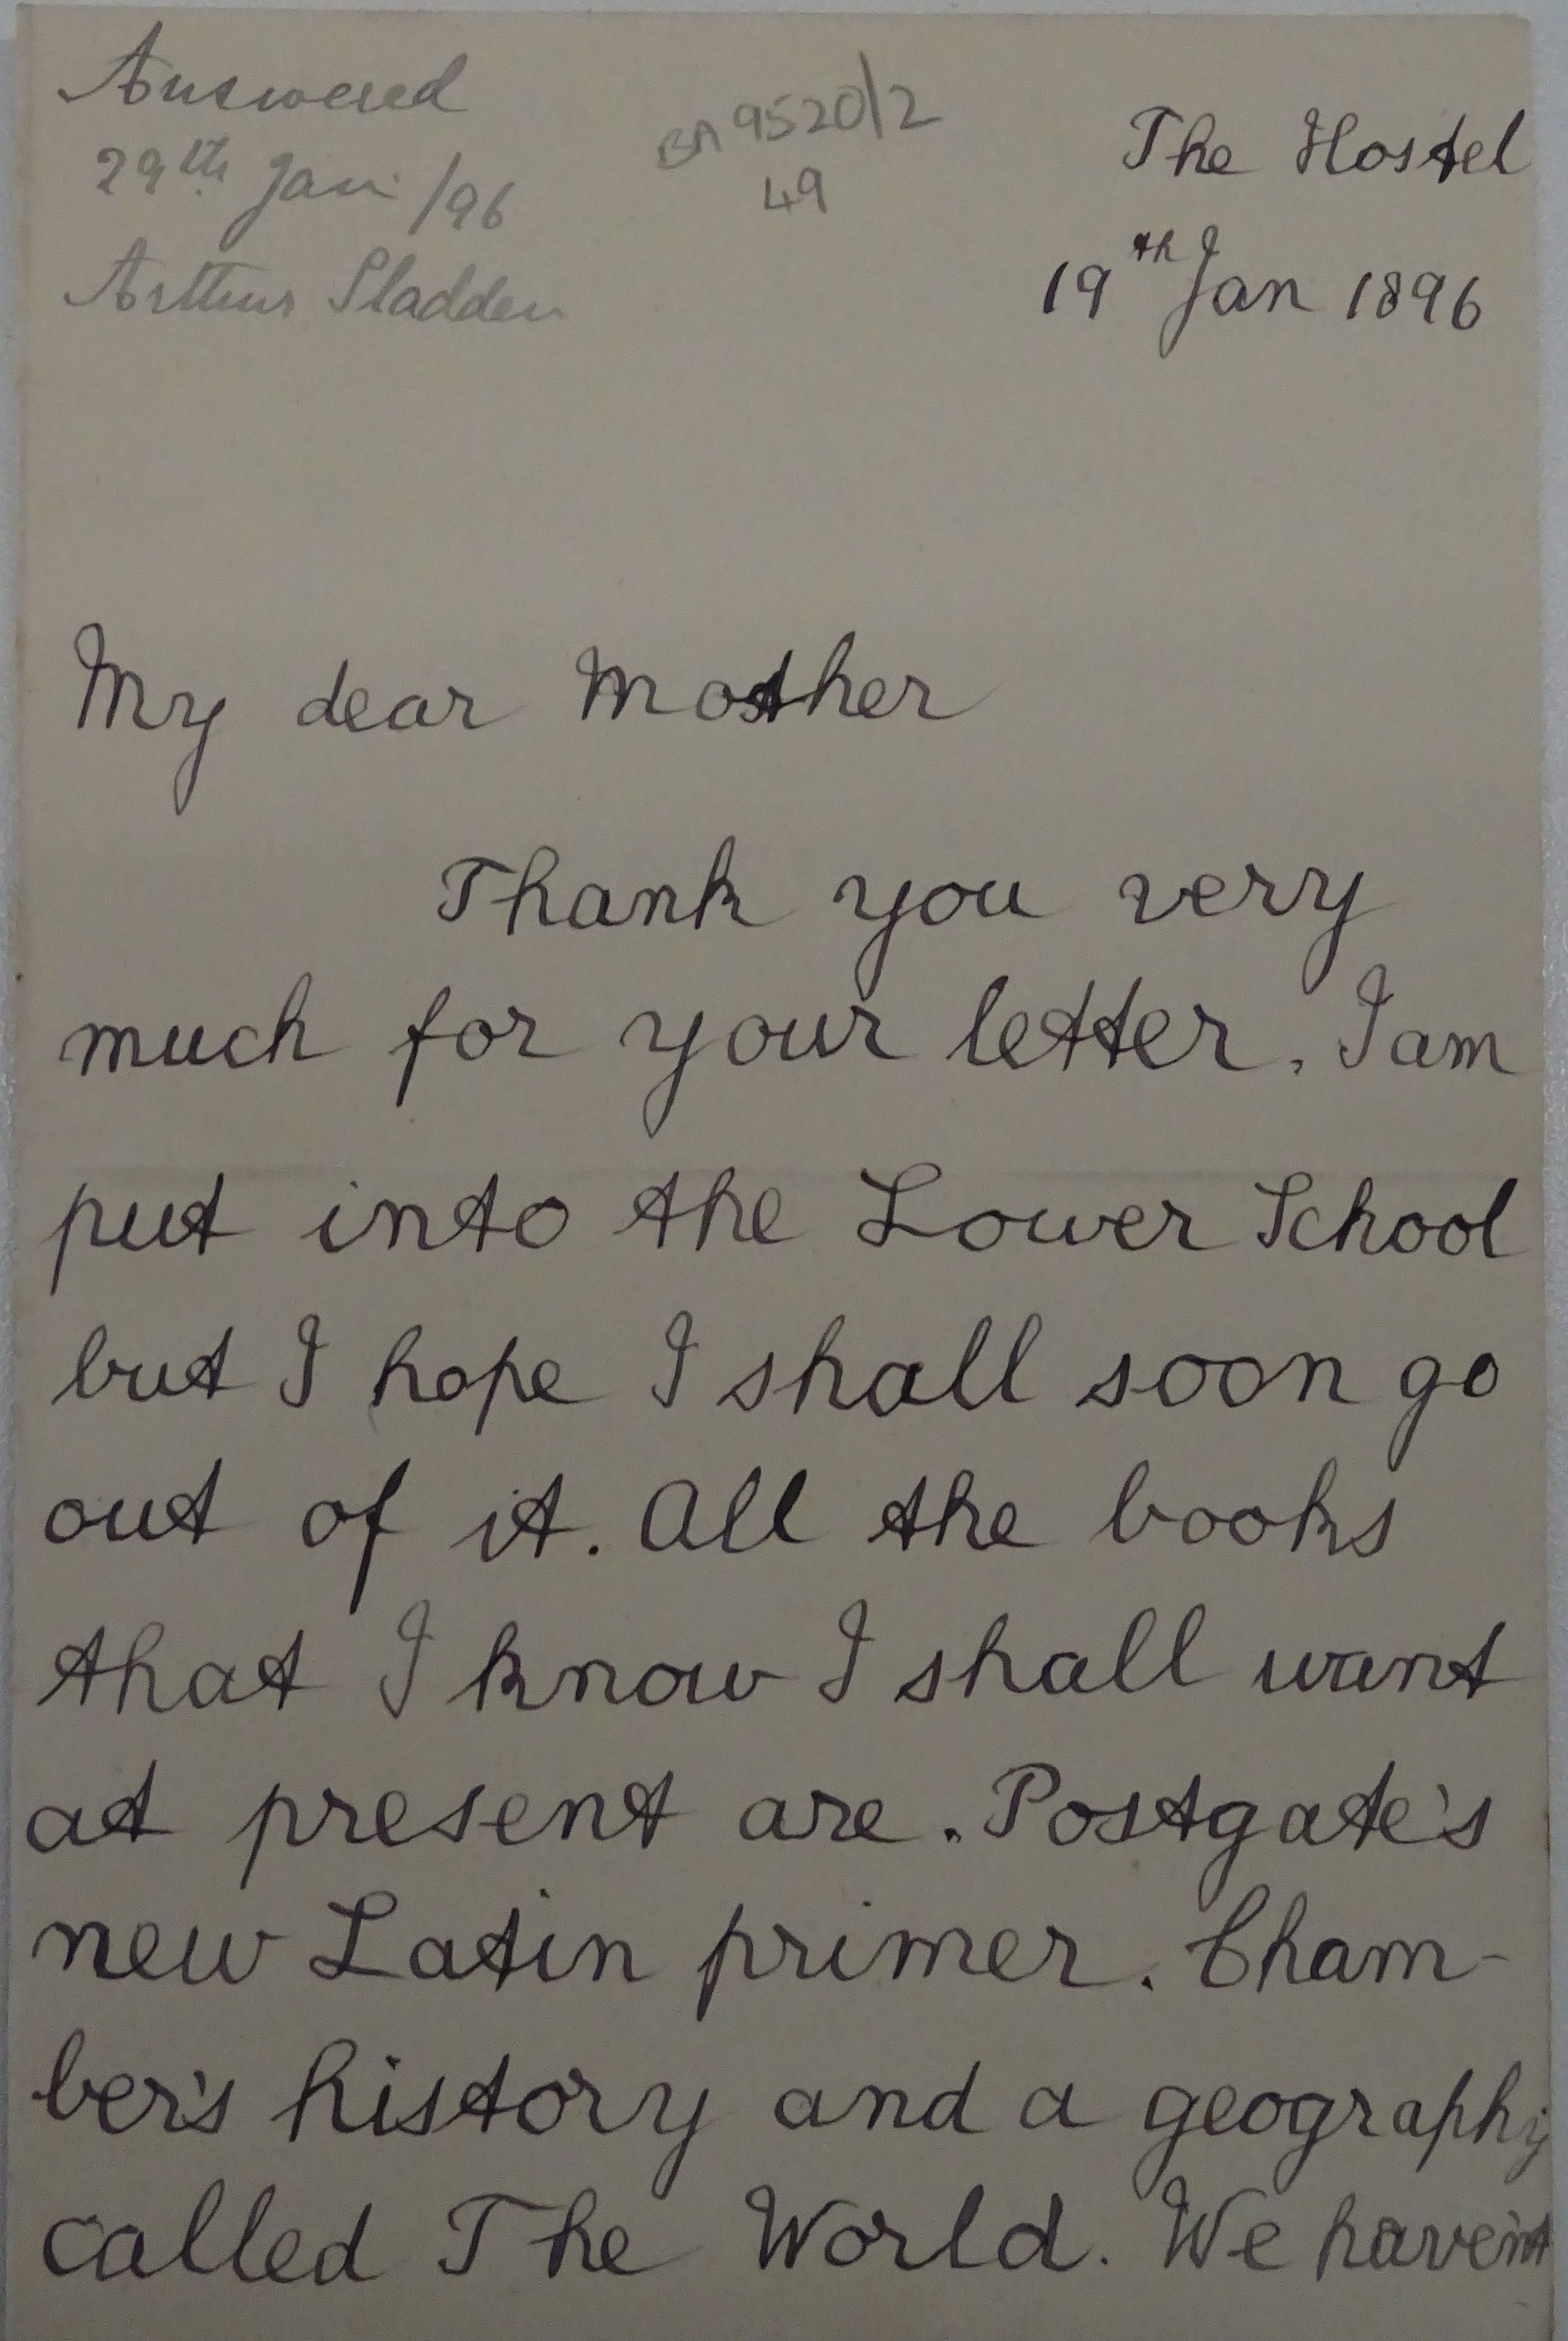 Answered
29th Jan /96
Arthur Sladden
BA 9520/2
49
The Hostel
19th Jan 1896
My dear Mother
Thank you very
much for your letter. I am
put into the Lower School
but I hope I shall soon go
out of it. All the books
that I know I shall want
at present are. Postgate's
new Latin primer. Cham-
ber's history and a geography
called The World. We have'nt